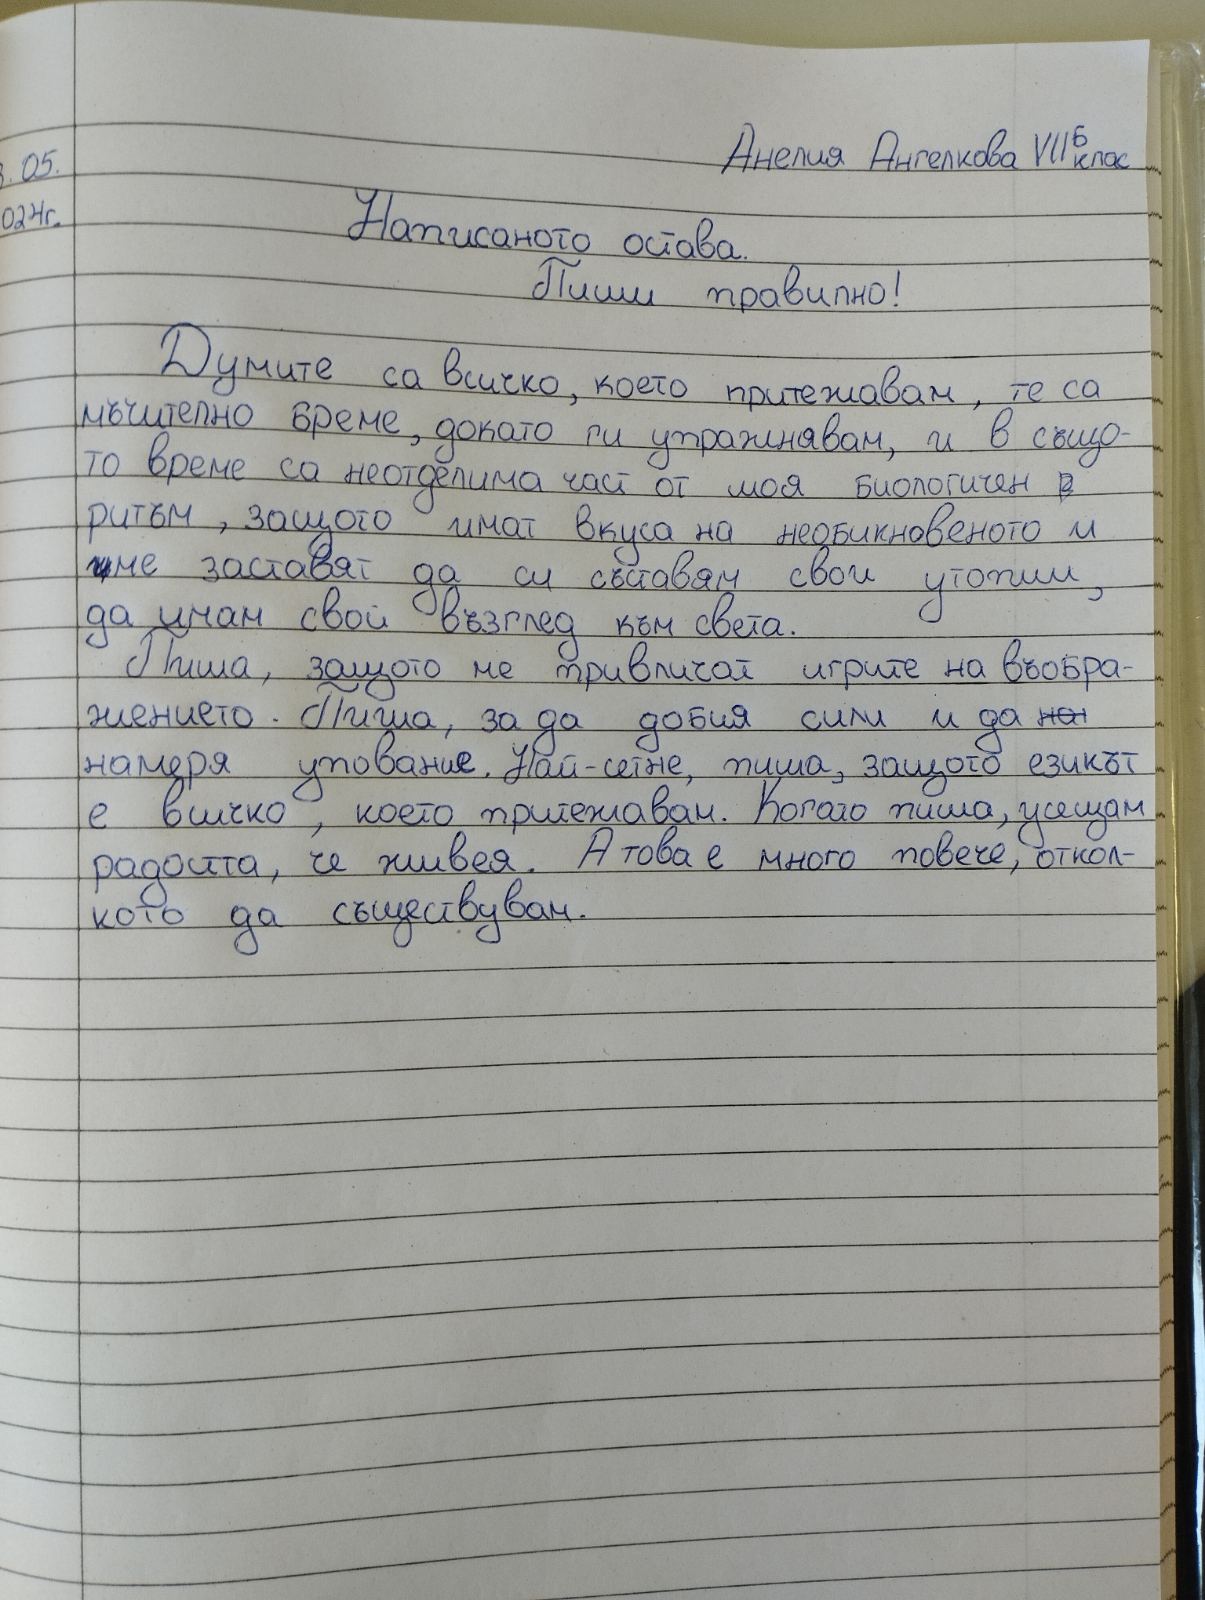 Анелия Ангелкова VII Б клас
3.05.
024г.
Написаното остава.
Пиши правилно!
Думите са всичко, което притежавам, те са
мъчително бреме, докато ги упражнявам, и в също-
то време са неотделима част от моя биологичен
ритъм, защото имат вкуса на необикновеното и
ме заставят да си съставям свои утопии,
да имам свой възглед към света.
Пиша, защото ме привличат игрите на въобра-
жението. Пиша, за да добия сили и да на
намеря упование. Най-сетне, пиша, защото езикът
е всичко, което притежавам. Когато пиша, усещам
радостта, че живея. А това е много повече, откол-
кото да съществувам.